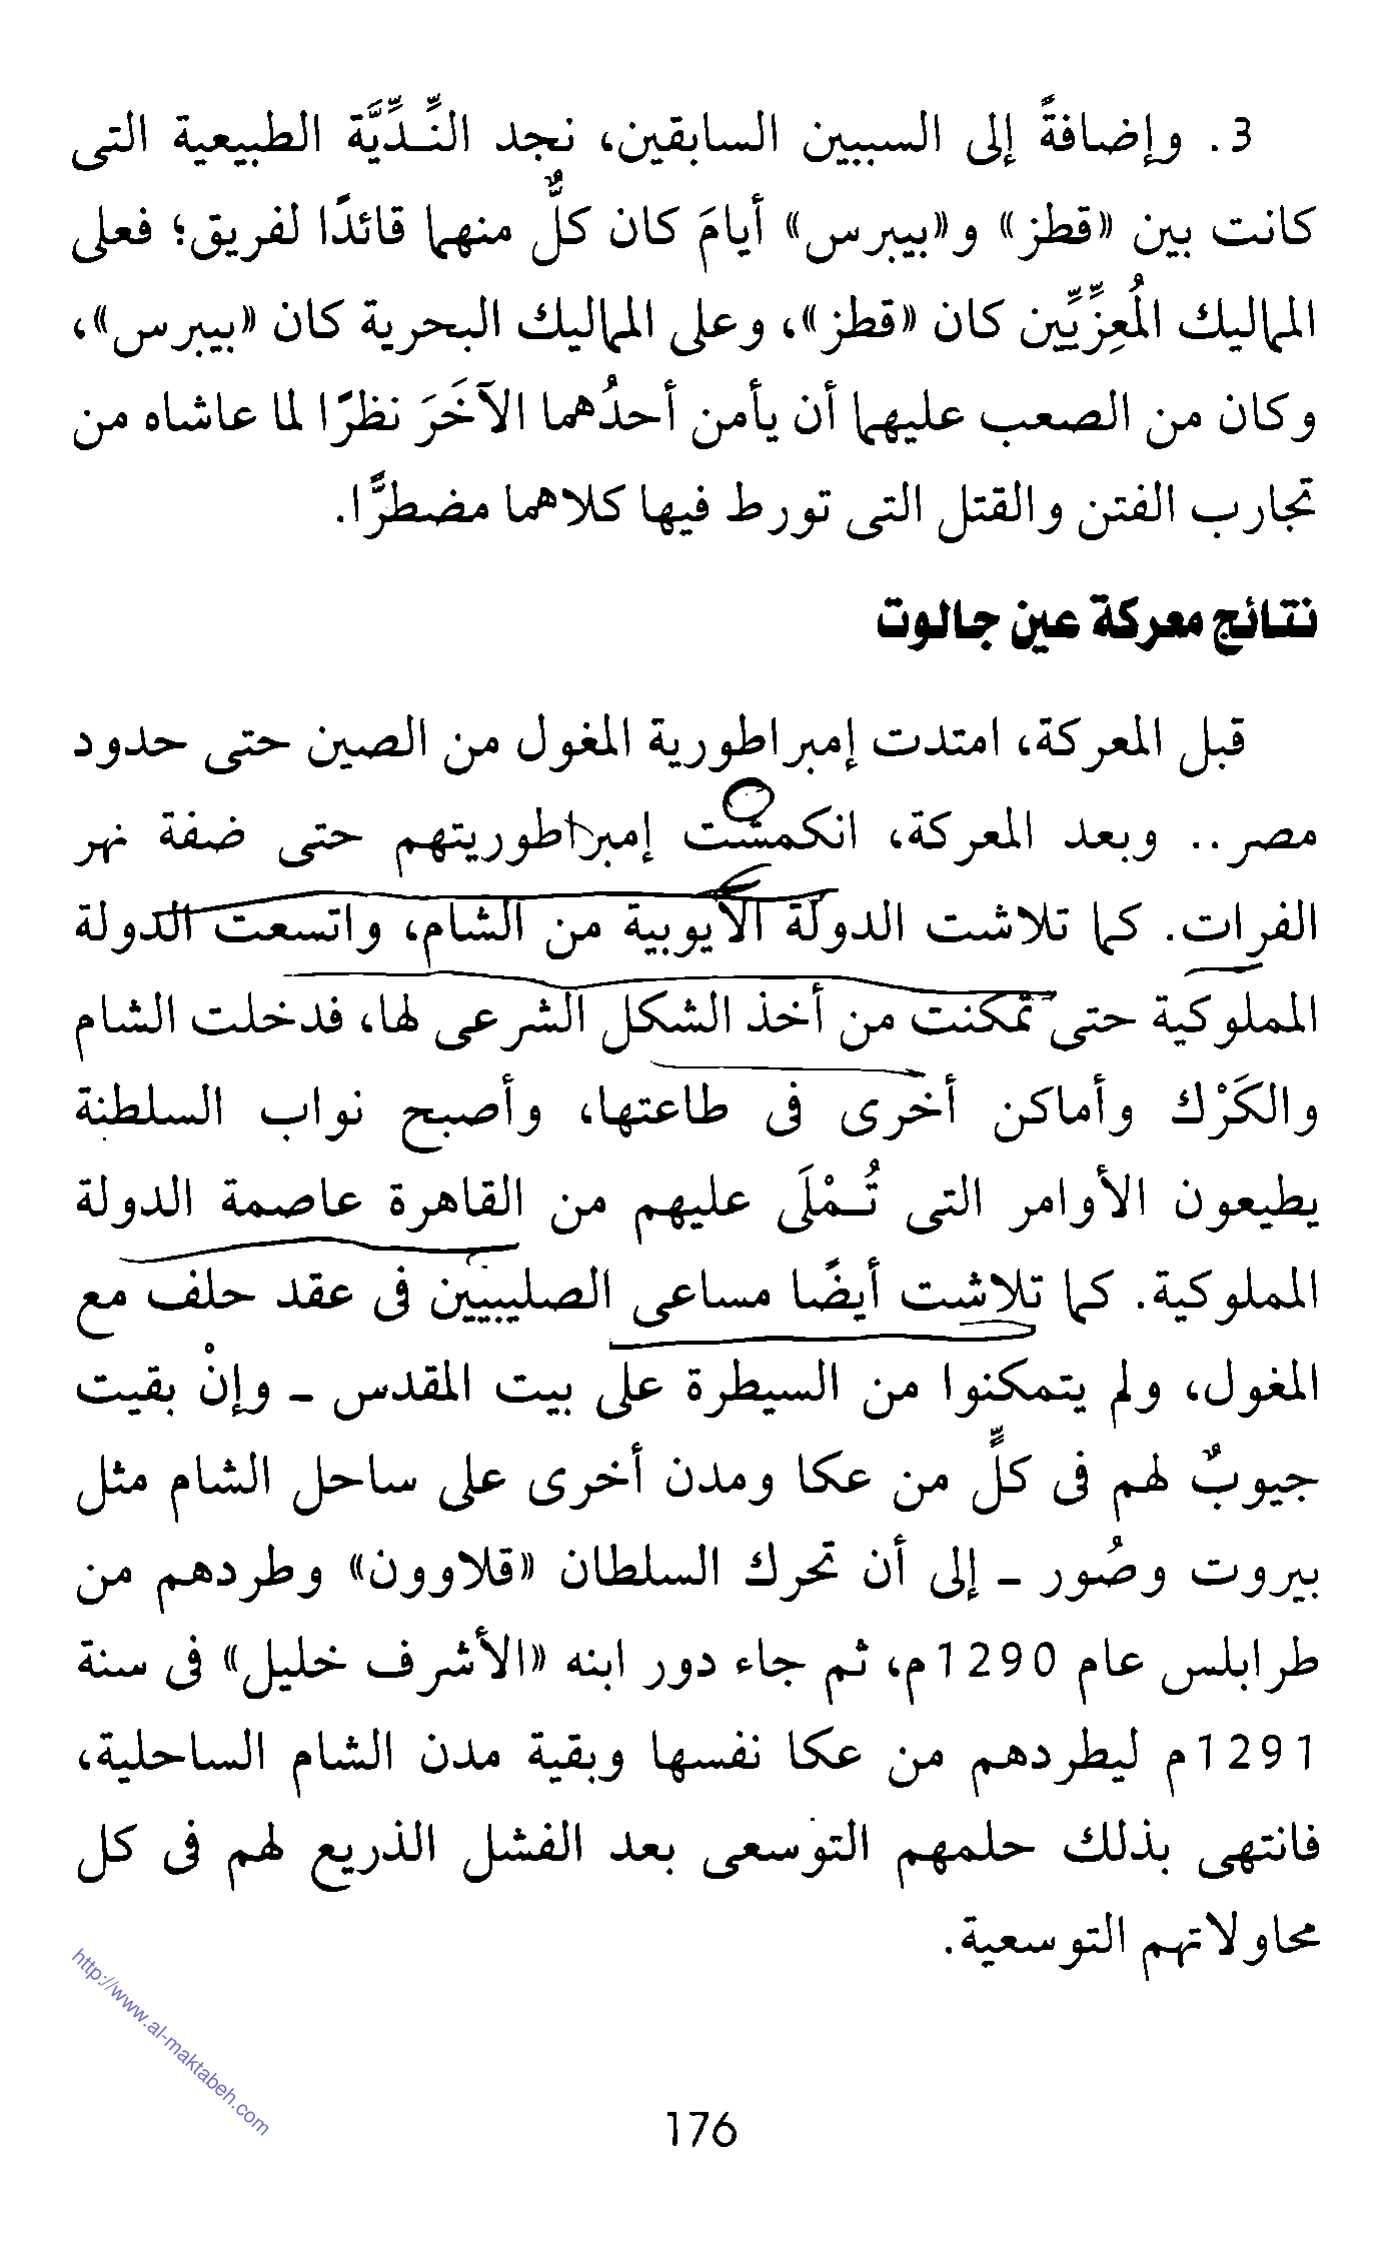 3. وإضافةً إلى السببين السابقين، نجد النِّـدِّيَّة الطبيعية التى
كانت بين «قطز» و«بيبرس» أيامَ كان كلٌّ منهما قائدًا لفريق؛ فعلى
المماليك المُعِزِّيِّين كان «قطز»، وعلى المماليك البحرية كان «بيبرس»،
وكان من الصعب عليهما أن يأمن أحدُهما الآخَرَ نظرًا لما عاشاه من
تجارب الفتن والقتل التى تورط فيها كلاهما مضطرًّا.
نتائج معركة عين جالوت
قبل المعركة، امتدت إمبراطورية المغول من الصين حتى حدود
مصر.. وبعد المعركة، انكمشت إمبراطوريتهم حتى ضفة نهر
الفرات. كما تلاشت الدولة الأيوبية من الشام، واتسعت الدولة
المملوكية حتى تمكنت من أخذ الشكل الشرعى لها، فدخلت الشام
والكَرْك وأماكن أخرى فى طاعتها، وأصبح نواب السلطنة
يطيعون الأوامر التى تُـمْلَى عليهم من القاهرة عاصمة الدولة
المملوكية. كما تلاشت أيضًا مساعى الصليبيين فى عقد حلف مع
المغول، ولم يتمكنوا من السيطرة على بيت المقدس ـ وإنْ بقيت
جيوبٌ لهم فى كلٍّ من عكا ومدن أخرى على ساحل الشام مثل
بيروت وصُور ـ إلى أن تحرك السلطان «قلاوون» وطردهم من
طرابلس عام 1290م، ثم جاء دور ابنه «الأشرف خليل» فى سنة
1291م ليطردهم من عكا نفسها وبقية مدن الشام الساحلية،
فانتهى بذلك حلمهم التوسعى بعد الفشل الذريع لهم فى كل
محاولاتهم التوسعية.
http://www.al-maktabeh.com
176